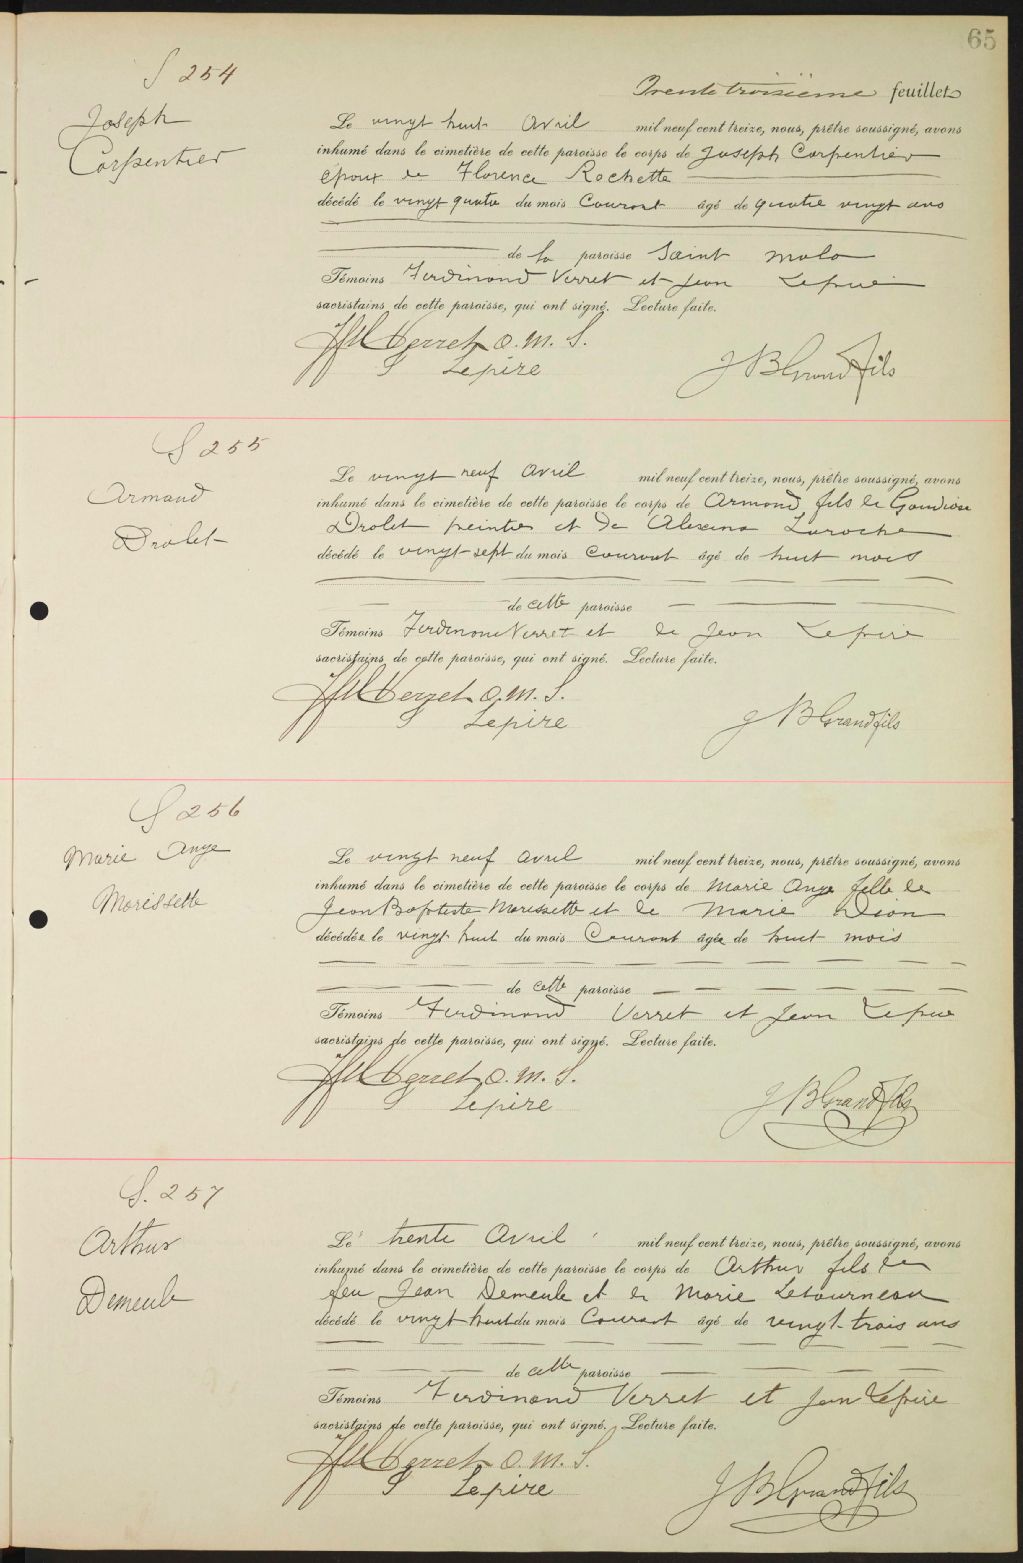 65
Trente troisième feuillet
S 254
Joseph
Carpentier
Le vingt huit Avril mil neuf cent treize, nous, prêtre soussigné, avons
inhumé dans le cimetière de cette paroisse le corps de Joseph Carpentier
époux de Florence Rochette
décédé le vingt quatre du mois Courant âgé de quatre vingt ans
de la paroisse Saint Malo
Témoins Ferdinand Verret et Jean Lepire
sacristains de cette paroisse, qui ont signé. Lecture faite.
Verret O.M.S.
Lepire
J B Grandfils
S 255
Armand
Drolet
Le vingt neuf Avril mil neuf cent treize, nous, prêtre soussigné, avons
inhumé dans le cimetière de cette paroisse le corps de Armand fils de Gaudiose
Drolet peintre et de Alexina Laroche
décédé le vingt-sept du mois Courant âgé de huit mois
de cette paroisse
Témoins Ferdinand Verret et de Jean Lepire
sacristains de cette paroisse, qui ont signé. Lecture faite.
Verret O.M.S.
Lepire
J B Grandfils
S 256
Marie Ange
Morissette
Le vingt neuf avril mil neuf cent treize, nous, prêtre soussigné, avons
inhumé dans le cimetière de cette paroisse le corps de Marie Ange fille de
Jean Baptiste Morissette et de Marie Dion
décédée le vingt huit du mois Courant âgée de huit mois
de cette paroisse
Témoins Ferdinand Verret et Jean Lepire
sacristains de cette paroisse, qui ont signé. Lecture faite.
Verret O.M.S.
Lepire
J B Grandfils
S. 257
Arthur
Demeule
Le trente Avril mil neuf cent treize, nous, prêtre soussigné, avons
inhumé dans le cimetière de cette paroisse le corps de Arthur fils de
feu Jean Demeule et de Marie Letourneau
décédé le vingt huit du mois Courant âgé de vingt-trois ans
de cette paroisse
Témoins Ferdinand Verret et Jean Lepire
sacristains de cette paroisse, qui ont signé. Lecture faite.
Verret O.M.S.
Lepire
J B Grandfils